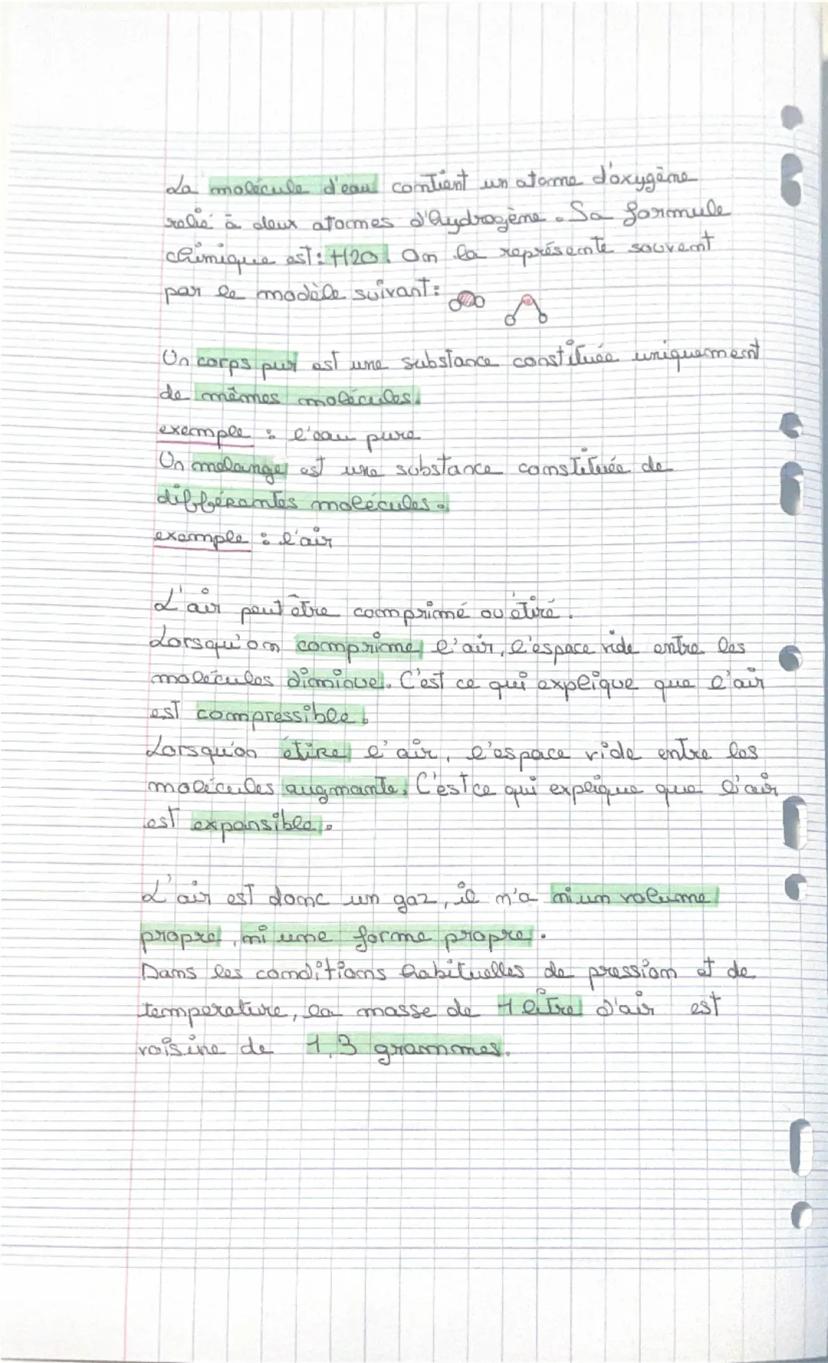 La molécule d'eau contient un atome d'oxygène
relié à deux atomes d'hydrogène. Sa formule
chimique est : H2O. On la représente souvent
par le modèle suivant :
Un corps pur est une substance constituée uniquement
de mêmes molécules.
exemple : l'eau pure
Un mélange est une substance constituée de
différentes molécules.
exemple : l'air
L'air peut être comprimé ou étiré.
Lorsqu'on comprime l'air, l'espace vide entre les
molécules diminue. C'est ce qui explique que l'air
est compressible.
Lorsqu'on étire l'air, l'espace vide entre les
molécules augmante. C'est ce qui explique que l'air
est expansible.
L'air est donc un gaz, il n'a ni un volume
propre, ni une forme propre.
Dans les conditions habituelles de pression et de
temperature, la masse de 1 litre d'air est
voisine de 1,3 grammes.